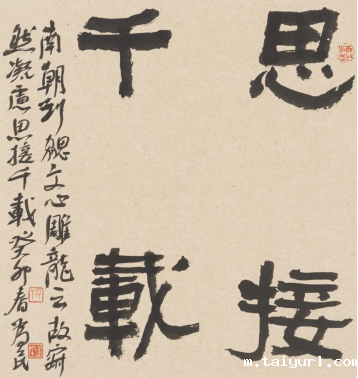 思接
千載
南朝刘勰文心雕龍云故寂
然凝慮思接千載癸卯春为民
m.taiyurl.com